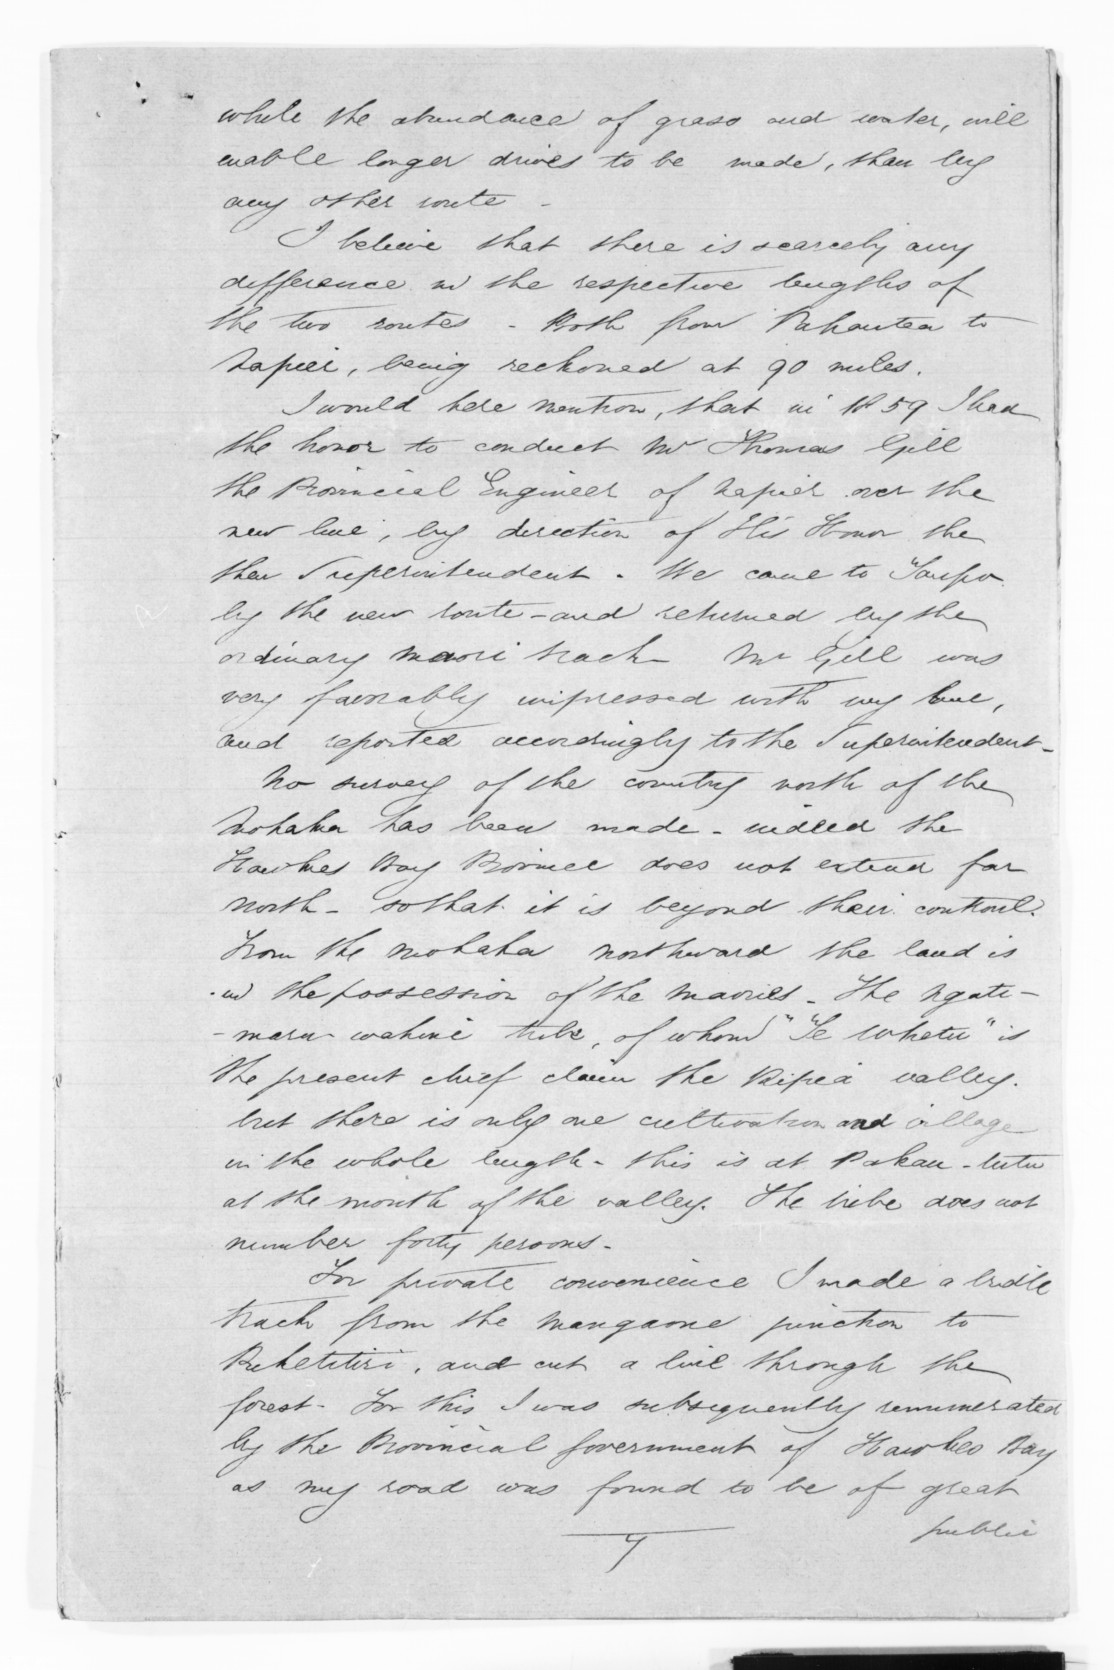 while the abundance of grass and water, will
enable longer drives to be made, than by
any other route -
I believe that there is scarcely any
difference in the respective lengths of
the two routes - Both from Pahautea to
Napier, being reckoned at 90 miles.
I would here mention, that in 1859 I had
the honor to conduct Mr Thomas Gill
the Provincial Engineer of Napier over the
new line, by direction of His Honor the
then Superintendent. We came to Taupo
by the new route - and returned by the
ordinary maori track - Mr Gill was
very favorably impressed with my line,
and reported accordingly to the Superintendent -
No survey of the country north of the
Mohaka has been made - indeed the
Hawkes Bay Province does not extend far
north - so that it is beyond their control.
From the Mohaka northward the land is
in the possession of the Maories - The Ngati-
- maru - wahine tribe, of whom "Te Whetu" is
the present chief claim the Ripia valley.
but there is only one cultivation and village
in the whole length - this is at Pakau - tutu
at the mouth of the valley. The tribe does not
number forty persons -
For private convenience I made a bridle
track from the Mangaone junction to
Puketitiri, and cut a line through the
forest - For this I was subsequently renumerated
by the Provincial Government of Hawkes Bay
as my road was found to be of great
public
7